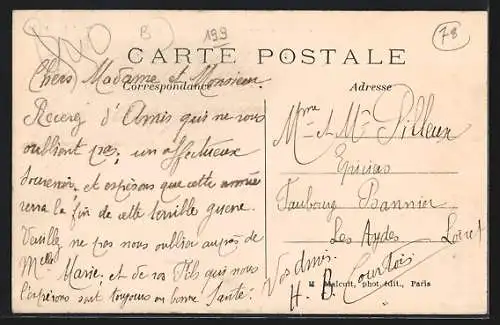 B
199
78
CARTE POSTALE
Correspondance
Adresse
Chers Madame et Monsieur.
Recevez d'Amis qui ne vous
oublient pas, un affectueux
souvenir, et espérons que cette année
verra la fin de cette terrible guerre.
Veuillez ne pas nous oublier auprès de
Melle Marie, et de vos fils qui nous
l'espérons sont toujours en bonne santé.
Mme et Mr Pilleux
Epiciers
Faubourg Bannier
Les Aydes Loiret
Vos Amis.
H. B. Courtois
M Malcuit, phot. édit., Paris